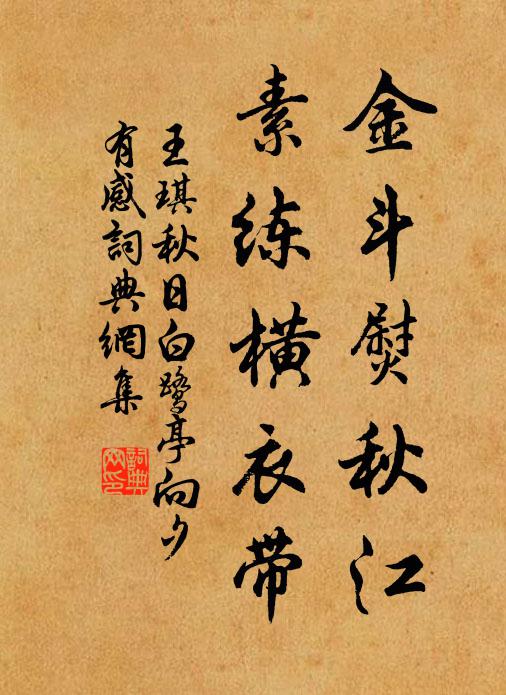 金斗熨秋江
素练橫衣帶
王琪秋日白鹭亭向夕
有感詞典網集
詞典
网印